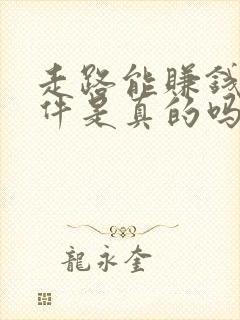 走路能賺錢
件是真的吗
龍永奎